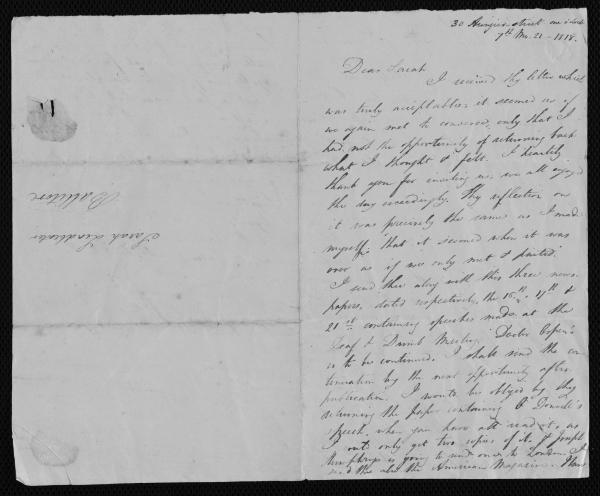 30 street one o'clock
7th Mo. 21 - 1818.
Dear Sarah
I received thy letter which
was truly acceptable; it seemed as if
we again met & conversed, only that I
had not the opportunity of returning back
what I thought & felt. I heartily
thank you for inviting us, we all enjoyed
the day exceedingly. Thy reflection on
it was precisely the same as I made
myself; that it seemed when it was
over as if we only met & parted.
I send thee along with this three news-
papers, dated respectively, the 15th, 17th &
21st containing speeches made at the
Deaf & Dumb Meeting. Doctor
is to be continued. I shall send the con-
tinuation by the next opportunity after
publication. I would be obliged by thy
returning the paper containing O'Donnell's
speech, when you have all read it, as
I could only get two copies of it, & Joseph
Humphreys is going to send one to London. I
send thee also the American Magazine.
Sarah
Ballitore